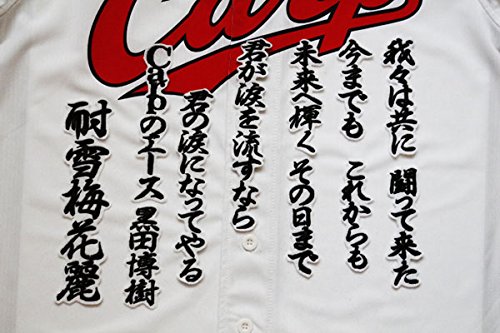 Carp
我々は共に 闘って来た
今までも これからも
未来へ輝く その日まで
君が涙を流すなら
君の涙になってやる
Carpのエース 黒田博樹
耐雪梅花麗